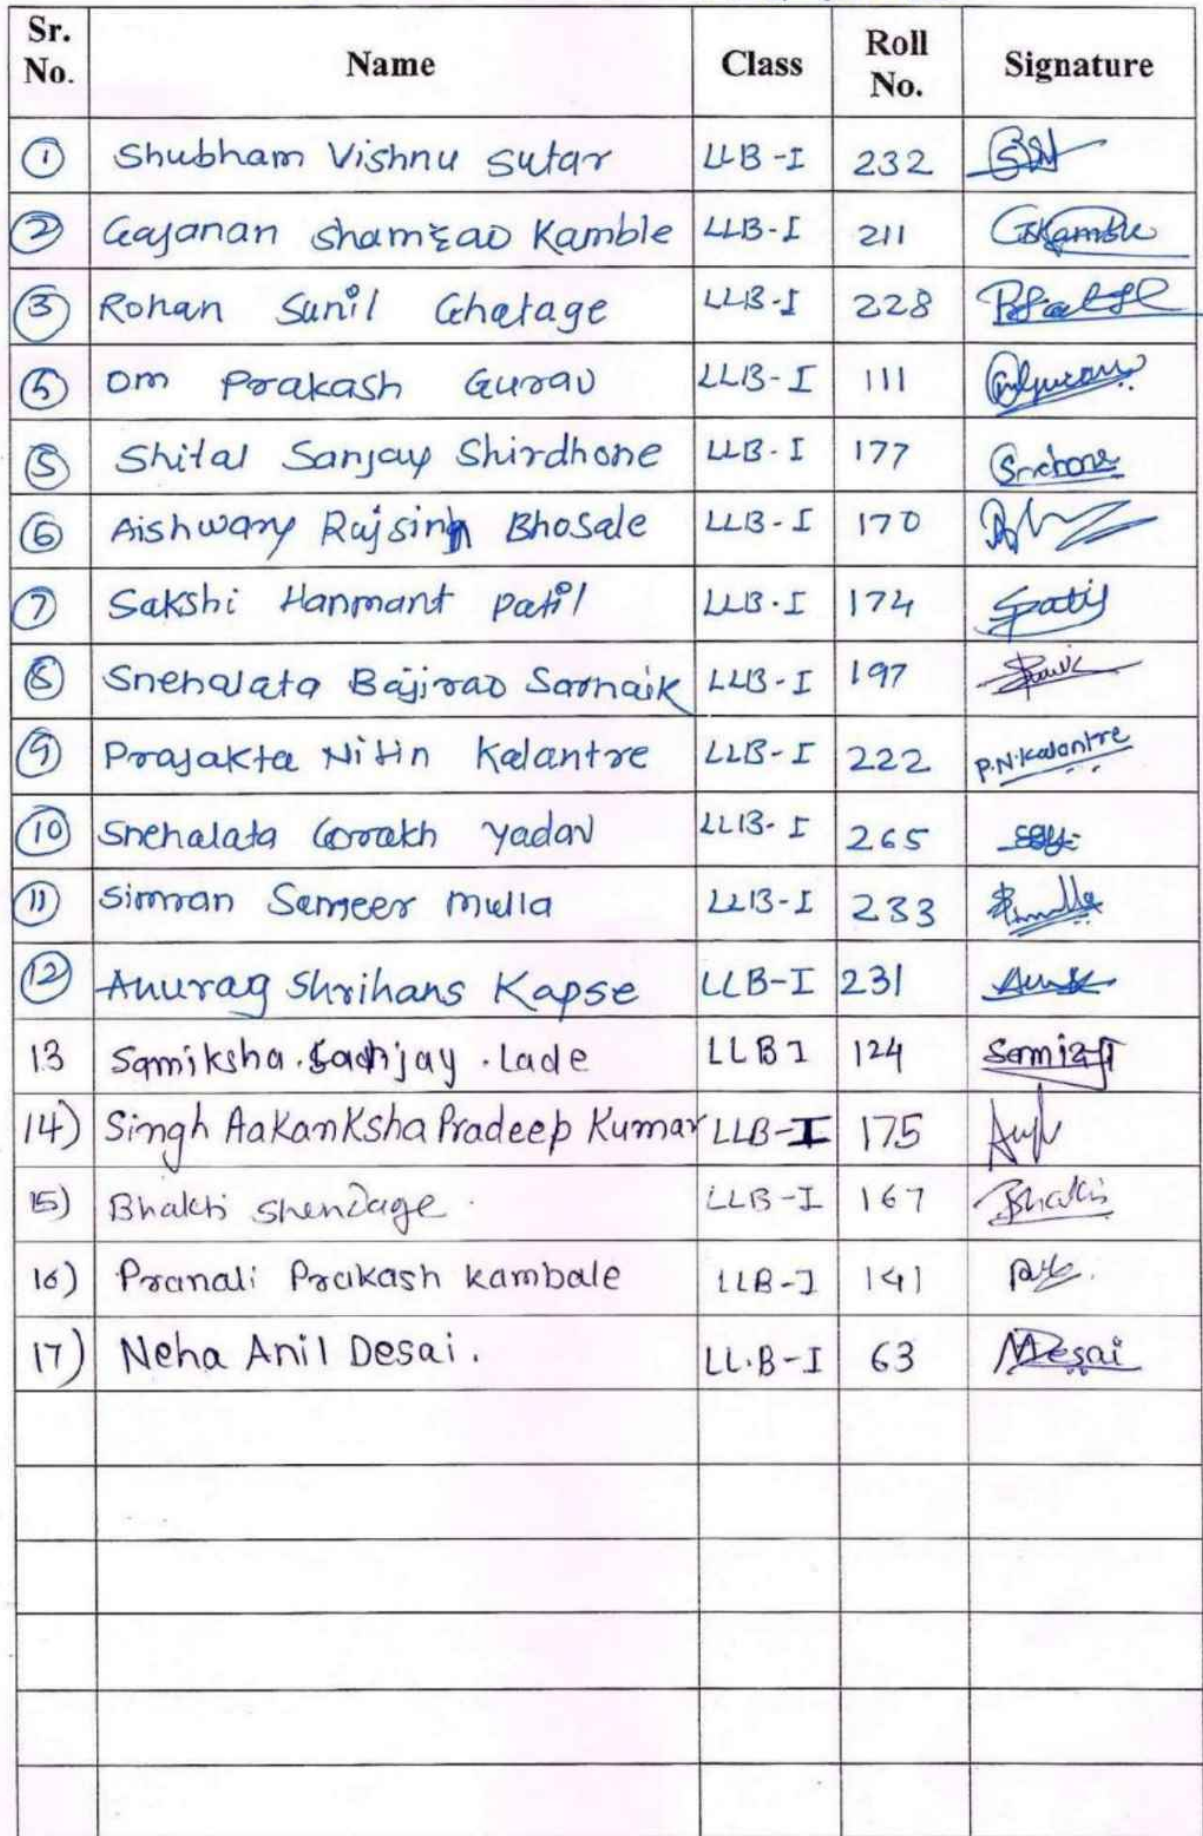 Sr. No. Name Class Roll No. Signature
1 Shubham Vishnu Sutar LLB-I 232
2 Gajanan Shamrao Kamble LLB-I 211 GSKamble
3 Rohan Sunil Ghatage LLB-I 228
Om Prakash Gurav LLB-I 111
5 Shital Sanjay Shirdhone LLB-I 177
6 Aishwary Rajsinh Bhosale LLB-I 170
7 Sakshi Hanmant Patil LLB-I 174 SPatil
8 Snehalata Bajirao Sarnaik LLB-I 197
9 Prajakta Nitin Kalantre LLB-I 222 P.N.Kalantre
10 Snehalata Gorakh Yadav LLB-I 265
11 Simran Sameer Mulla LLB-I 233 SMulla
12 Anurag Shrihans Kapse LLB-I 231
13 Samiksha. Sanjay . Lade LLB I 124
14) Singh Aakanksha Pradeep Kumar LLB-I 175
15) Bhakti Shendage. LLB-I 167 Bhakti
16) Pranali Prakash Kambale LLB-I 141
17) Neha Anil Desai. LL.B-I 63 NDesai